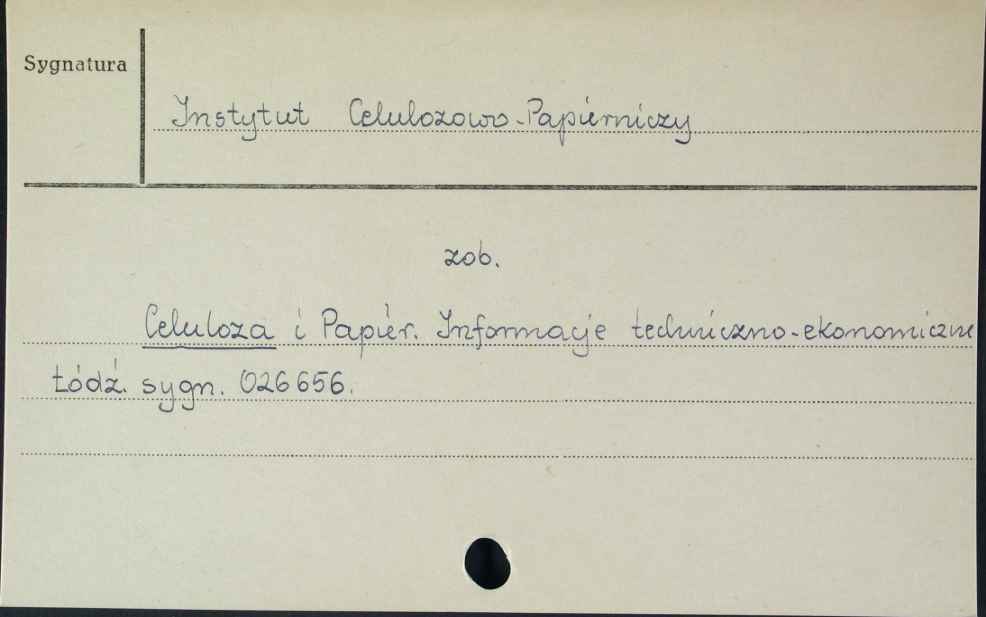 Sygnatura
Instytut Celulozowo-Papierniczy
zob.
Celuloza i Papier. Informacje techniczno-ekonomiczne
Łódź. sygn. 026656.